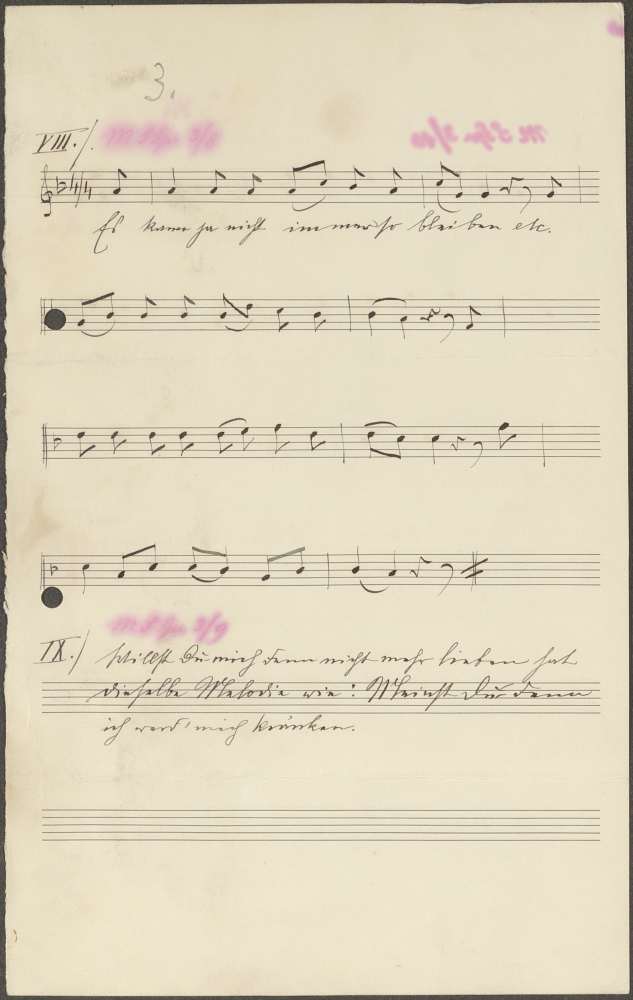 3.
VIII./.
4/4
Es kann ja nicht immer so bleiben etc.
IX./ Willst Du mich denn nicht mehr lieben hat
dieselbe Melodie wie: Meinst Du denn
ich werd' mich kränken.